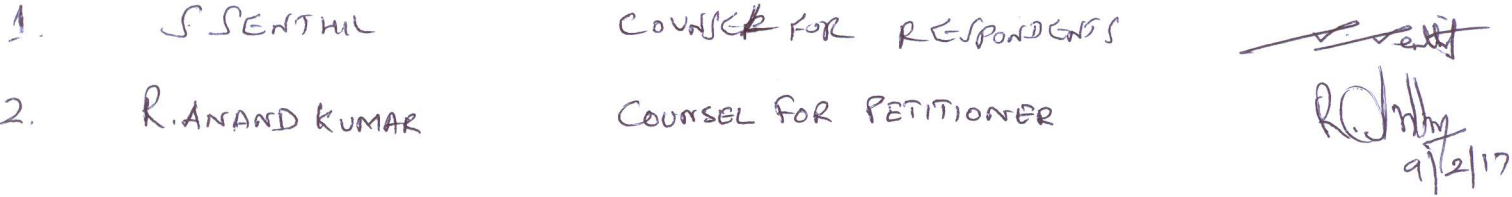 1. S SENTHIL COUNSEL FOR RESPONDENTS S. Senthil
2. R. ANAND KUMAR COUNSEL FOR PETITIONER
9/2/17